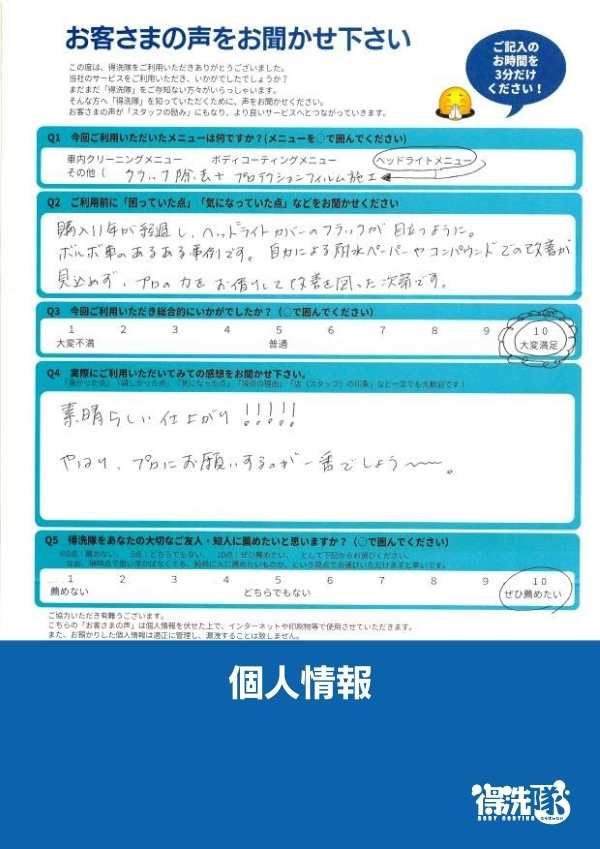 お客さまの声をお聞かせ下さい
ご記入の
お時間を
3分だけ
ください！
この度は、得洗隊をご利用いただきありがとうございました。
当社のサービスをご利用いただき、いかがでしたでしょうか？
まだまだ「得洗隊」をご存知ない方々がいらっしゃいます。
そんな方へ「得洗隊」を知っていただくために、声をお聞かせください。
お客さまの声が「スタッフの励み」にもなり、より良いサービスへとつながっていきます。
Q1 今回ご利用いただいたメニューは何ですか？(メニューを○で囲んでください)
車内クリーニングメニュー ボディコーティングメニュー ヘッドライトメニュー
その他（ クラック除去+プロテクションフィルム施工
Q2 ご利用前に「困っていた点」「気になっていた点」などをお聞かせください
購入11年が経過し、ヘッドライトカバーのクラックが目立つように。
ボルボ車のあるある事例です。自力による耐水ペーパーやコンパウンドでの改善が
見込めず、プロの力をお借りして改善を図った次第です。
Q3 今回ご利用いただき総合的にいかがでしたか？（○で囲んでください）
1 2 3 4 5 6 7 8 9 10
大変不満 普通 大変満足
Q4 実際にご利用いただいてみての感想をお聞かせ下さい。
「良かった点」「嬉しかった点」「気になった点」「採点の理由」「店（スタッフ）の印象」など一言でも大歓迎です！
素晴らしい仕上がり!!!!!
やはり、プロにお願いするのが一番でしょう〜〜。
Q5 得洗隊をあなたの大切なご友人・知人に薦めたいと思いますか？（○で囲んでください）
1 2 3 4 5 6 7 8 9 10
薦めない どちらでもない ぜひ薦めたい
ご協力いただき有難うございます。
こちらの「お客さまの声」は個人情報を伏せた上で、インターネットや印刷物等で使用させていただきます。
また、お預かりした個人情報は適正に管理し、漏洩することは致しません。
個人情報
得洗隊
BODY COATING